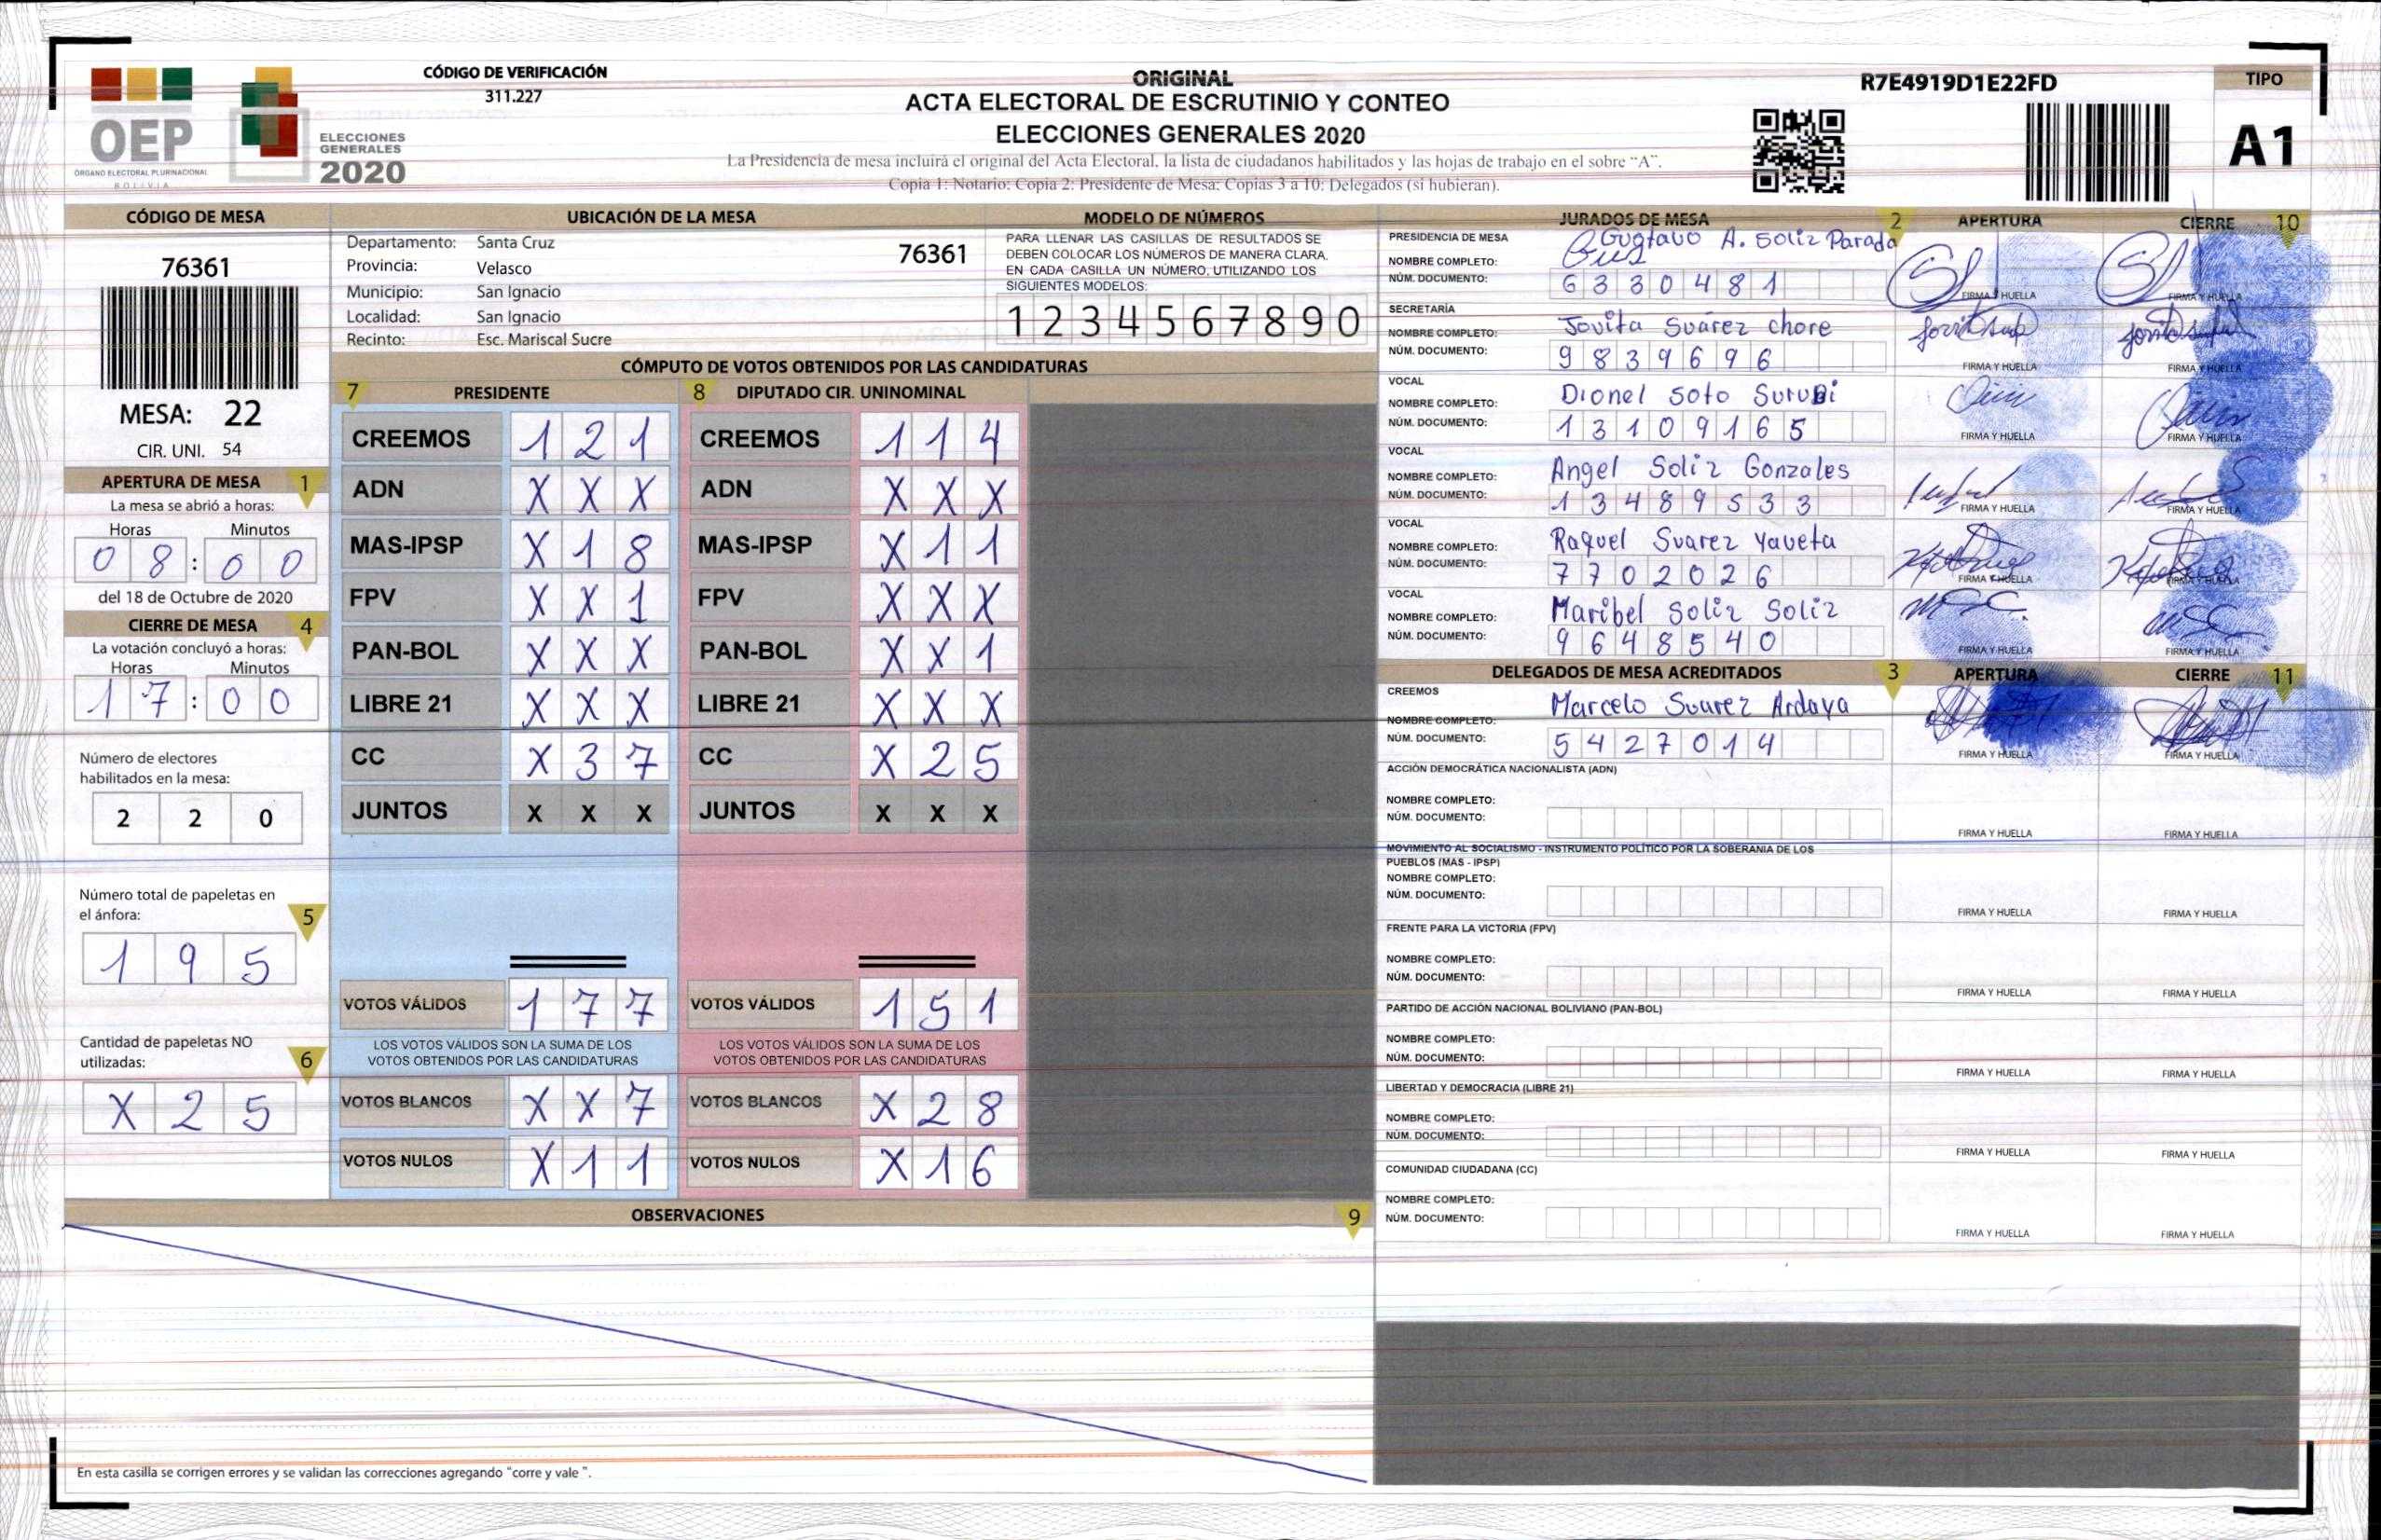 OEP
ÓRGANO ELECTORAL PLURINACIONAL
BOLIVIA
ELECCIONES
GENERALES
2020
CÓDIGO DE VERIFICACIÓN
311.227
ORIGINAL
ACTA ELECTORAL DE ESCRUTINIO Y CONTEO
ELECCIONES GENERALES 2020
La Presidencia de mesa incluirá el original del Acta Electoral, la lista de ciudadanos habilitados y las hojas de trabajo en el sobre "A".
Copia 1: Notario; Copia 2: Presidente de Mesa; Copias 3 a 10: Delegados (si hubieran).
R7E4919D1E22FD
TIPO
A1
CÓDIGO DE MESA
76361
MESA: 22
CIR. UNI. 54
APERTURA DE MESA 1
La mesa se abrió a horas:
Horas Minutos
0 8 : 0 0
del 18 de Octubre de 2020
CIERRE DE MESA 4
La votación concluyó a horas:
Horas Minutos
1 7 : 0 0
Número de electores
habilitados en la mesa:
2 2 0
Número total de papeletas en
el ánfora: 5
1 9 5
Cantidad de papeletas NO
utilizadas: 6
X 2 5
UBICACIÓN DE LA MESA
Departamento: Santa Cruz 76361
Provincia: Velasco
Municipio: San Ignacio
Localidad: San Ignacio
Recinto: Esc. Mariscal Sucre
MODELO DE NÚMEROS
PARA LLENAR LAS CASILLAS DE RESULTADOS SE
DEBEN COLOCAR LOS NÚMEROS DE MANERA CLARA,
EN CADA CASILLA UN NÚMERO, UTILIZANDO LOS
SIGUIENTES MODELOS:
1 2 3 4 5 6 7 8 9 0
CÓMPUTO DE VOTOS OBTENIDOS POR LAS CANDIDATURAS
7 PRESIDENTE 8 DIPUTADO CIR. UNINOMINAL
CREEMOS 1 2 1 CREEMOS 1 1 4
ADN X X X ADN X X X
MAS-IPSP X 1 8 MAS-IPSP X 1 1
FPV X X 1 FPV X X X
PAN-BOL X X X PAN-BOL X X 1
LIBRE 21 X X X LIBRE 21 X X X
CC X 3 7 CC X 2 5
JUNTOS X X X JUNTOS X X X
VOTOS VÁLIDOS 1 7 7 VOTOS VÁLIDOS 1 5 1
LOS VOTOS VÁLIDOS SON LA SUMA DE LOS LOS VOTOS VÁLIDOS SON LA SUMA DE LOS
VOTOS OBTENIDOS POR LAS CANDIDATURAS VOTOS OBTENIDOS POR LAS CANDIDATURAS
VOTOS BLANCOS X X 7 VOTOS BLANCOS X 2 8
VOTOS NULOS X 1 1 VOTOS NULOS X 1 6
OBSERVACIONES 9
En esta casilla se corrigen errores y se validan las correcciones agregando "corre y vale ".
JURADOS DE MESA 2 APERTURA CIERRE 10
PRESIDENCIA DE MESA
NOMBRE COMPLETO: Gustavo A. Soliz Parada
NÚM. DOCUMENTO: 6 3 3 0 4 8 1
FIRMA Y HUELLA FIRMA Y HUELLA
SECRETARÍA
NOMBRE COMPLETO: Jovita Suárez chore
NÚM. DOCUMENTO: 9 8 3 9 6 9 6
FIRMA Y HUELLA FIRMA Y HUELLA
VOCAL
NOMBRE COMPLETO: Dionel Soto Surubi
NÚM. DOCUMENTO: 1 3 1 0 9 1 6 5
FIRMA Y HUELLA FIRMA Y HUELLA
VOCAL
NOMBRE COMPLETO: Angel Soliz Gonzales
NÚM. DOCUMENTO: 1 3 4 8 9 5 3 3
FIRMA Y HUELLA FIRMA Y HUELLA
VOCAL
NOMBRE COMPLETO: Raquel Suarez Yaveta
NÚM. DOCUMENTO: 7 7 0 2 0 2 6
FIRMA Y HUELLA FIRMA Y HUELLA
VOCAL
NOMBRE COMPLETO: Maribel Soliz Soliz
NÚM. DOCUMENTO: 9 6 4 8 5 4 0
FIRMA Y HUELLA FIRMA Y HUELLA
DELEGADOS DE MESA ACREDITADOS 3 APERTURA CIERRE 11
CREEMOS
NOMBRE COMPLETO: Marcelo Suarez Ardaya
NÚM. DOCUMENTO: 5 4 2 7 0 1 4
FIRMA Y HUELLA FIRMA Y HUELLA
ACCIÓN DEMOCRÁTICA NACIONALISTA (ADN)
NOMBRE COMPLETO:
NÚM. DOCUMENTO:
FIRMA Y HUELLA FIRMA Y HUELLA
MOVIMIENTO AL SOCIALISMO - INSTRUMENTO POLÍTICO POR LA SOBERANIA DE LOS
PUEBLOS (MAS - IPSP)
NOMBRE COMPLETO:
NÚM. DOCUMENTO:
FIRMA Y HUELLA FIRMA Y HUELLA
FRENTE PARA LA VICTORIA (FPV)
NOMBRE COMPLETO:
NÚM. DOCUMENTO:
FIRMA Y HUELLA FIRMA Y HUELLA
PARTIDO DE ACCIÓN NACIONAL BOLIVIANO (PAN-BOL)
NOMBRE COMPLETO:
NÚM. DOCUMENTO:
FIRMA Y HUELLA FIRMA Y HUELLA
LIBERTAD Y DEMOCRACIA (LIBRE 21)
NOMBRE COMPLETO:
NÚM. DOCUMENTO:
FIRMA Y HUELLA FIRMA Y HUELLA
COMUNIDAD CIUDADANA (CC)
NOMBRE COMPLETO:
NÚM. DOCUMENTO:
FIRMA Y HUELLA FIRMA Y HUELLA